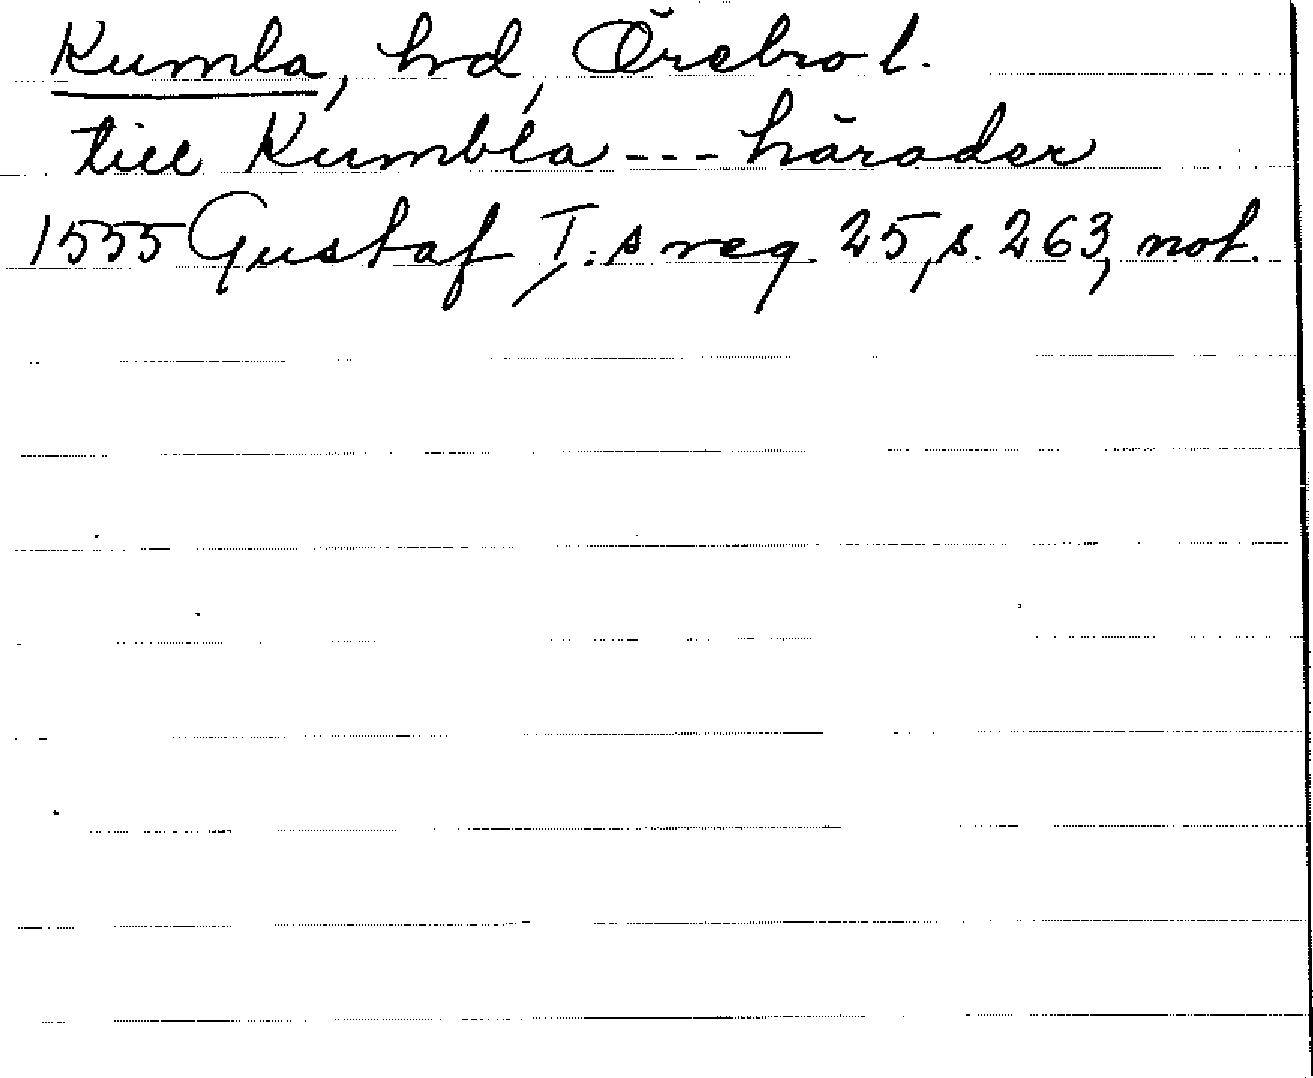 Kumla, hd, Örebro l.
till Kumbla --- härader
1555 Gustaf I:s reg. 25, s. 263, not.